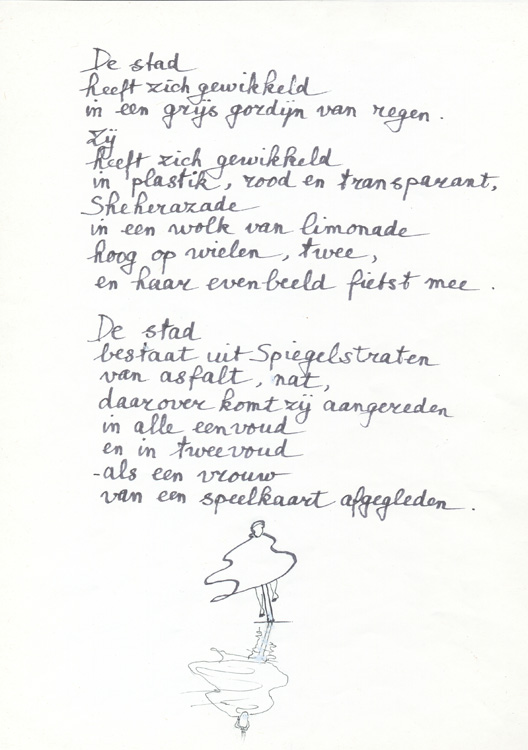 De stad
heeft zich gewikkeld
in een grijs gordijn van regen.
Zij
heeft zich gewikkeld
in plastik, rood en transparant,
Sheherazade
in een wolk van limonade
hoog op wielen, twee,
en haar evenbeeld fietst mee.
De stad
bestaat uit Spiegelstraten
van asfalt, nat,
daarover komt zij aangereden
in alle eenvoud
en in tweevoud
-als een vrouw
van een speelkaart afgegleden.